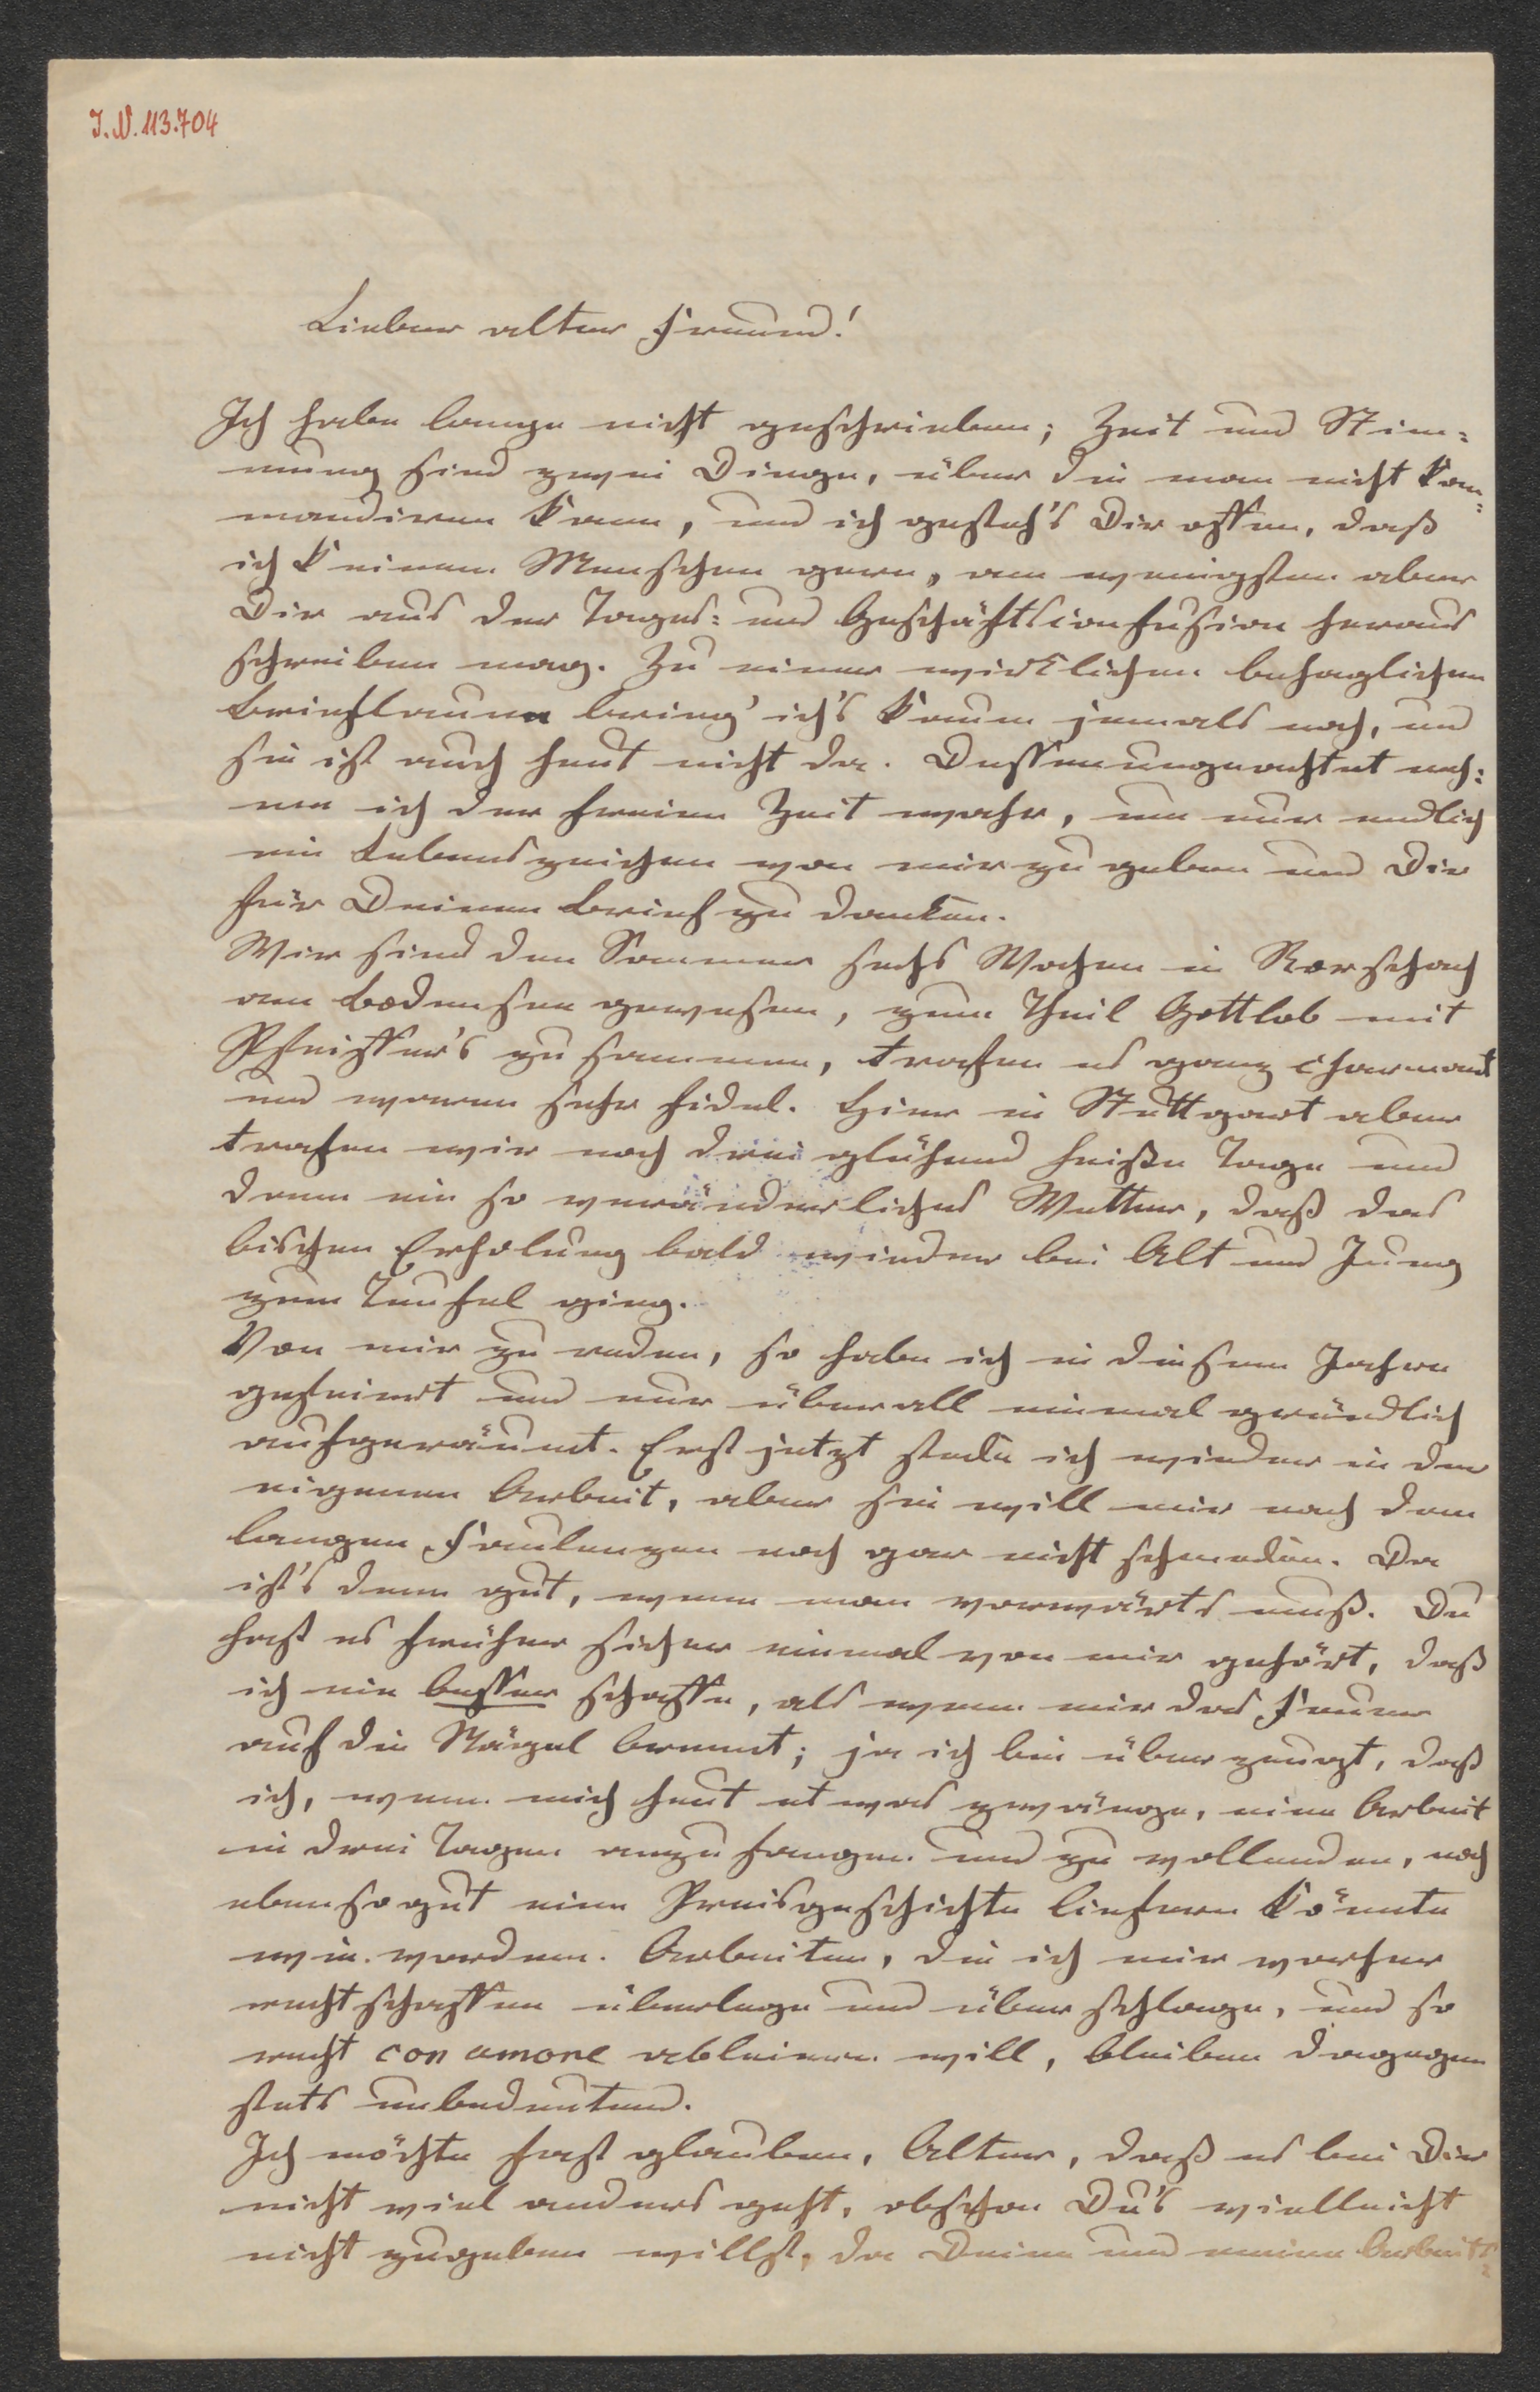 I.N. 113.704
Lieber alter Freund!
Ich habe lange nicht geschrieben; Zeit und Stim-
mung sind zwei Dinge, über die man nicht kom-
mandiren kann, und ich gesteh's Dir offen, daß
ich keinem Menschen gern, am wenigsten aber
Dir aus der Tages- und Geschäftsconfusion heraus
schreiben mag. Zu einer wirklichen behaglichen
Brieflaune bring' ich's kaum jemals noch, und
sie ist auch heut nicht da. Dessenungeachtet neh-
me ich der freien Zeit wahr, um nur endlich
ein Lebenszeichen von mir zu geben und Dir
für Deinen Brief zu danken.
Wir sind den Sommer sechs Wochen in Rorschach
am Bodensee gewesen, zum Theil Gottlob mit
Pfeiffer's zusammen, trafen es ganz charmant
und waren sehr fidel. Hier in Stuttgart aber
trafen wir noch drei glühend heiße Tage und
dann ein so veränderliches Wetter, daß das
bischen Erholung bald wieder bei Alt und Jung
zum Teufel ging.
Von mir zu reden, so habe ich in diesem Jahre
gefeiert und nur überall einmal gründlich
aufgeräumt. Erst jetzt stecke ich wieder in der
eigenen Arbeit, aber sie will mir nach dem
langen Faulenzen noch gar nicht schmecken. Da
ist's denn gut, wenn man vorwärts muß. Du
hast es früher sicher einmal von mir gehört, daß
ich nie besser schaffe, als wenn mir das Feuer
auf die Nägel brennt; ja ich bin überzeugt, daß
ich, wenn mich heut etwas zwänge, eine Arbeit
in drei Tagen anzufangen und zu vollenden, noch
ebensogut eine Preisgeschichte liefern könnte
wie vordem. Arbeiten, die ich mir vorher
rechtschaffen überlege und überschlage, und so
recht con amore ableiern will, bleiben dagegen
stets unbedeutend.
Ich möchte fast glauben, Alter, daß es bei Dir
nicht viel anders geht, obschon Du's vielleicht
nicht zugeben willst, da Deine und meine Arbeits-